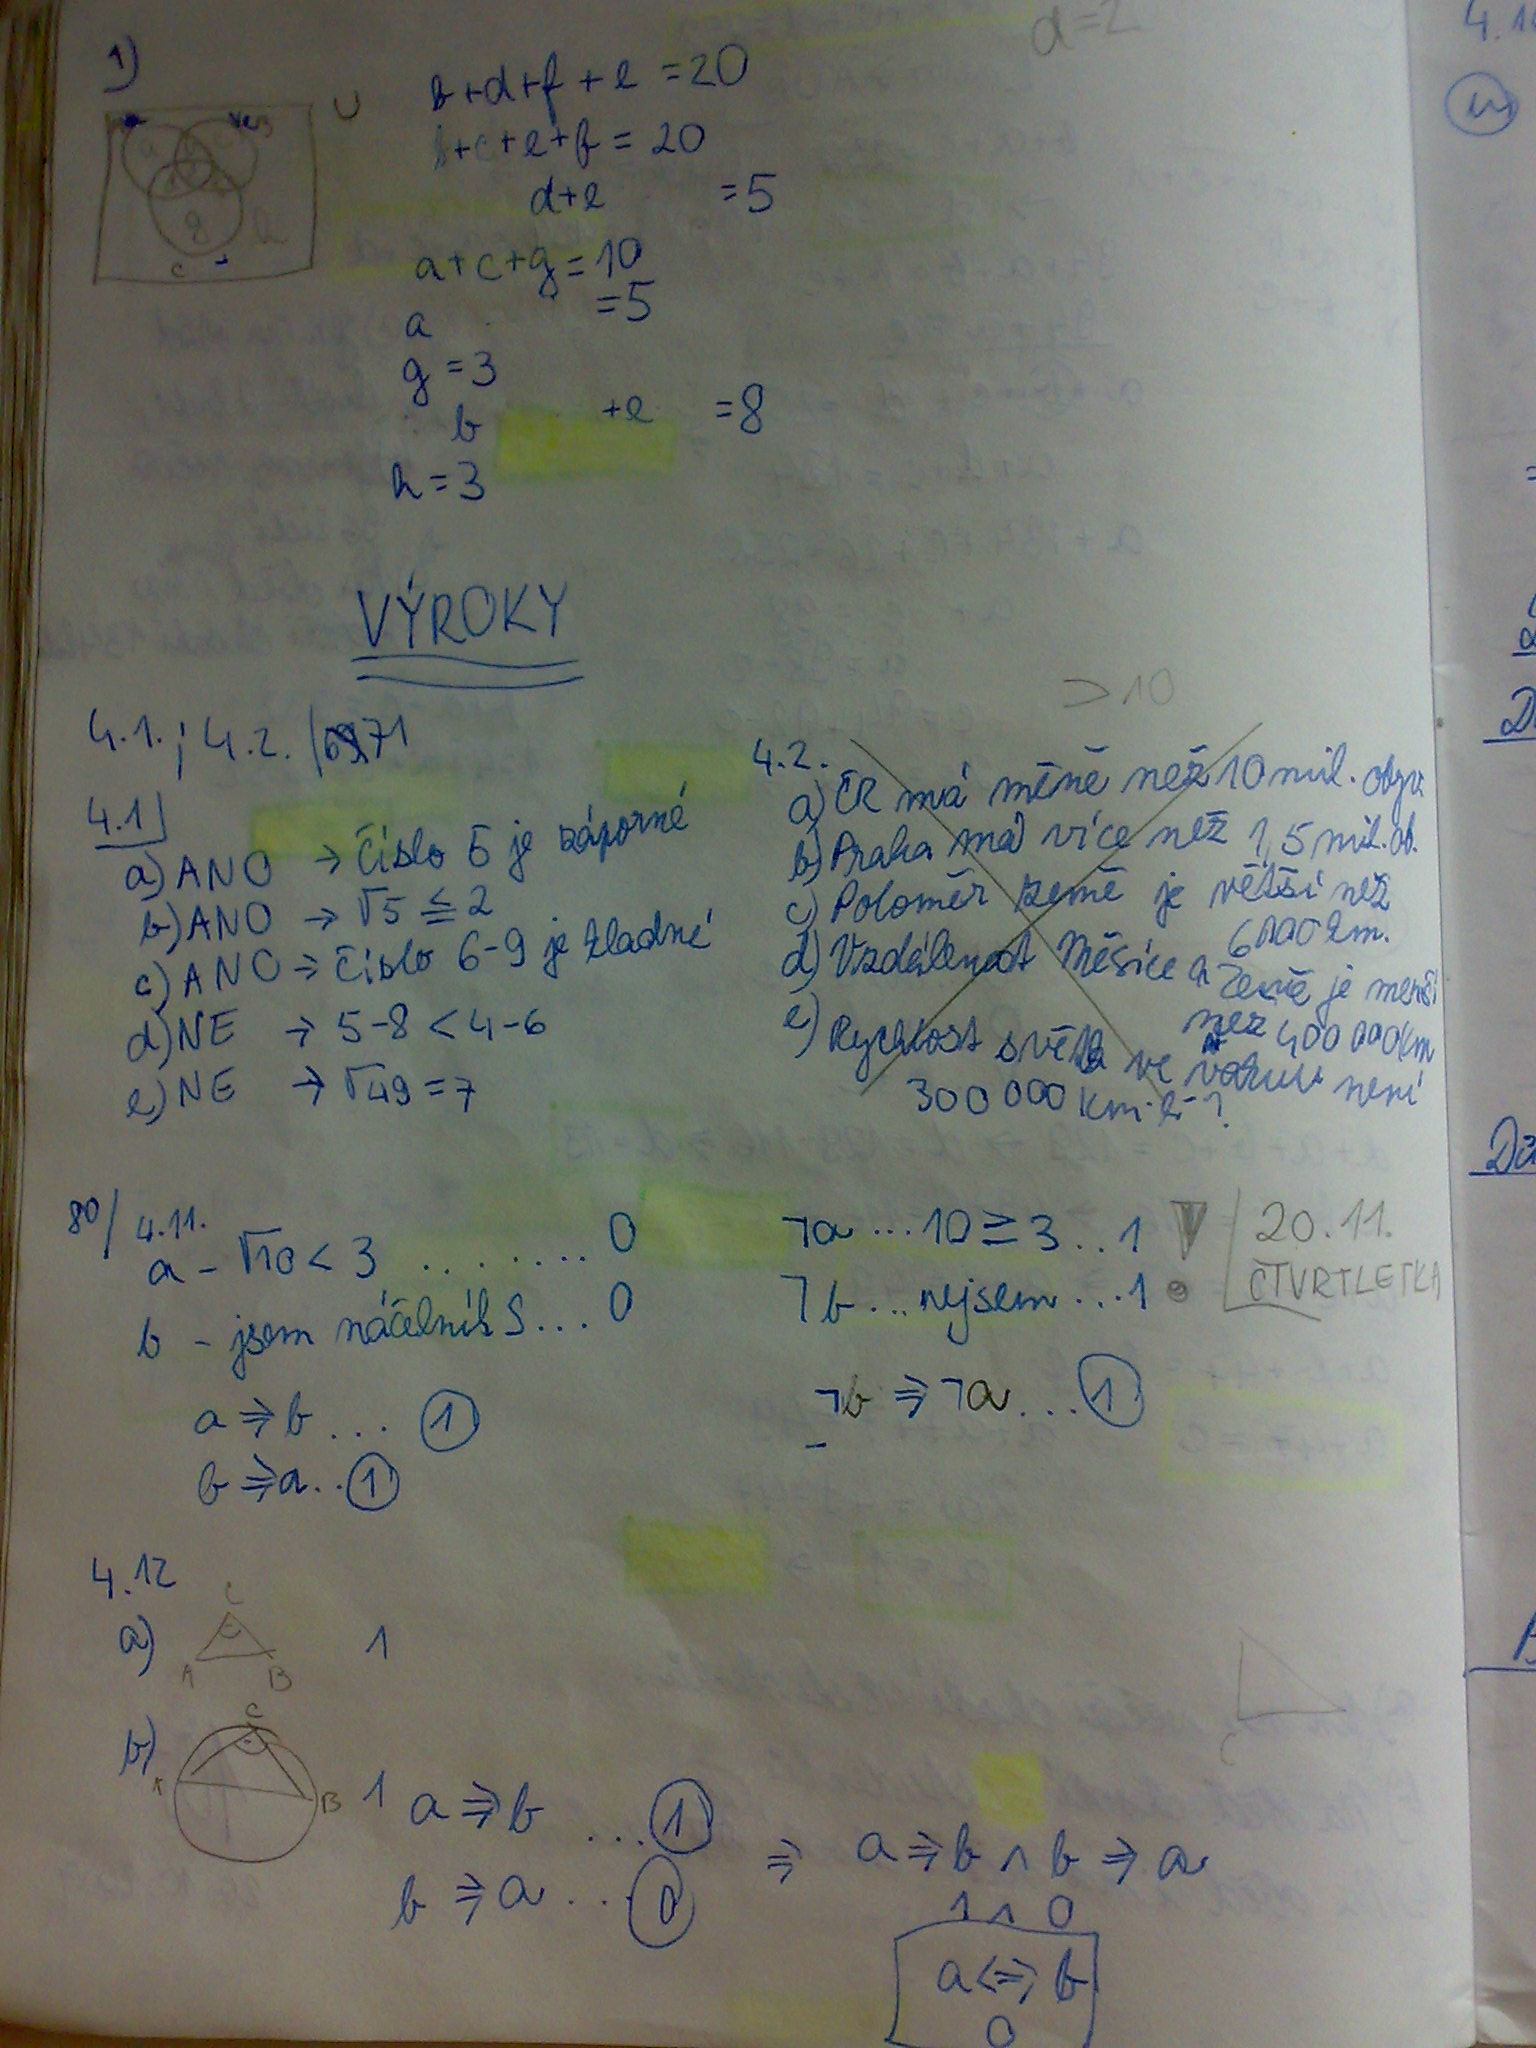 1)
U
b+d+f+e =20
b+c+e+f = 20
d+e =5
a+c+g=10
a =5
g =3
b +e =8
h =3
d=2
VÝROKY
4.1. ; 4.2. | 71
4.1
a) ANO → číslo 5 je záporné
b) ANO → √5 ≦ 2
c) ANO → číslo 6-9 je kladné
d) NE → 5-8 < 4-6
e) NE → √49 = 7
> 10
4.2.
a) ČR má méně než 10 mil. obyv
b) Praha má více než 1,5 mil. ob.
c) Poloměr země je větší než
6000 km.
d) Vzdálenost Měsíce a Země je menší
než 400 000 km
e) Rychlost světla ve vakuu není
300 000 km·s⁻¹.
80/ 4.11.
a - √10 < 3 ........ 0
b - jsem náčelník S... 0
a ⇒ b ... 1
b ⇒ a .. 1
¬a ... 10 ≥ 3 .. 1
¬b ... nejsem ... 1
¬b ⇒ ¬a ... 1
20.11.
ČTVRTLETKA
4.12
a) C A B 1
b) C A B 1
a ⇒ b ... 1
b ⇒ a ... 0
⇒ a ⇒ b ∧ b ⇒ a
1 ∧ 0
a ⇔ b
0
C